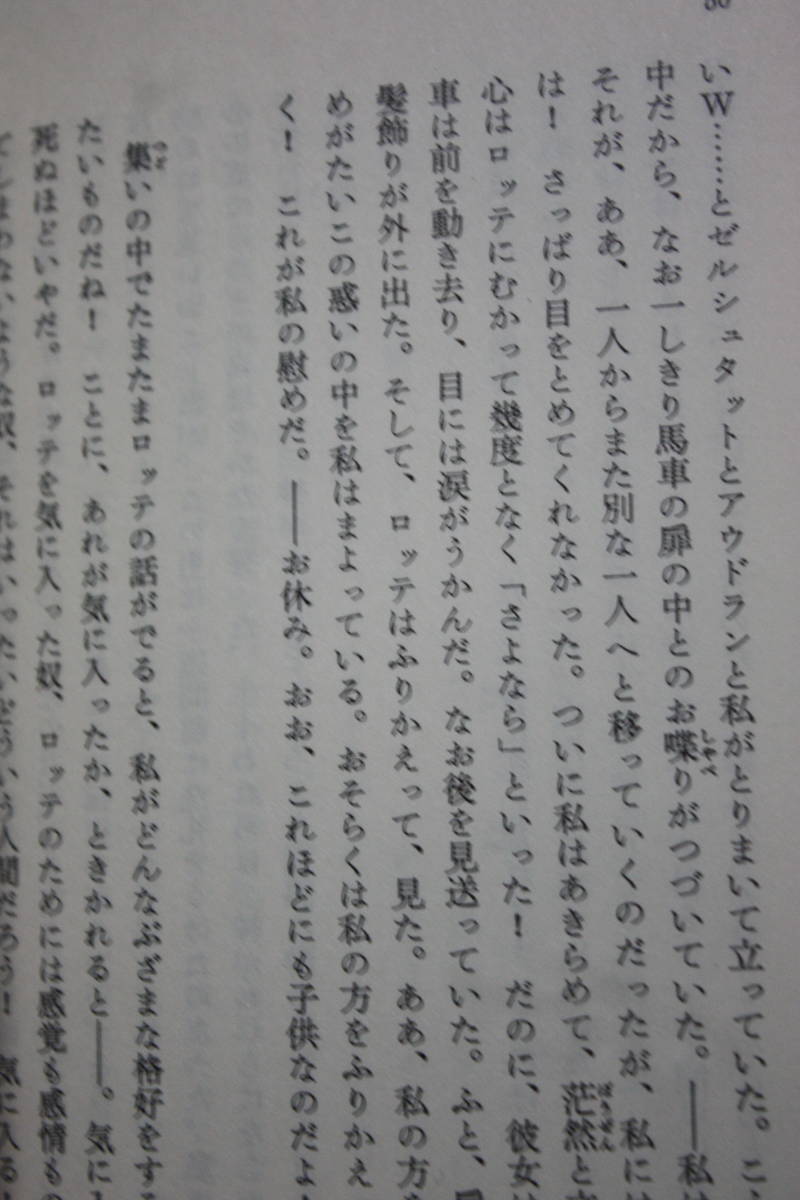 いW……とゼルシュタットとアウドランと私がとりまいて立っていた。こ
中だから、なお一しきり馬車の扉の中とのお喋りがつづいていた。――私
それが、ああ、一人からまた別な一人へと移っていくのだったが、私に
は！　さっぱり目をとめてくれなかった。ついに私はあきらめて、茫然と
心はロッテにむかって幾度となく「さよなら」といった！　だのに、彼女
車は前を動き去り、目には涙がうかんだ。なお後を見送っていた。ふと、
髪飾りが外に出た。そして、ロッテはふりかえって、見た。ああ、私の方
めがたいこの惑いの中を私はまよっている。おそらくは私の方をふりかえ
く！　これが私の慰めだ。――お休み。おお、これほどにも子供なのだよ！
集いの中でたまたまロッテの話がでると、私がどんなぶざまな格好をする
たいものだね！　ことに、あれが気に入ったか、ときかれると――。気に入
死ぬほどいやだ。ロッテを気に入った奴、ロッテのためには感覚も感情も
てしまわないような奴、それはいったいどういう人間だろう！　気に入る